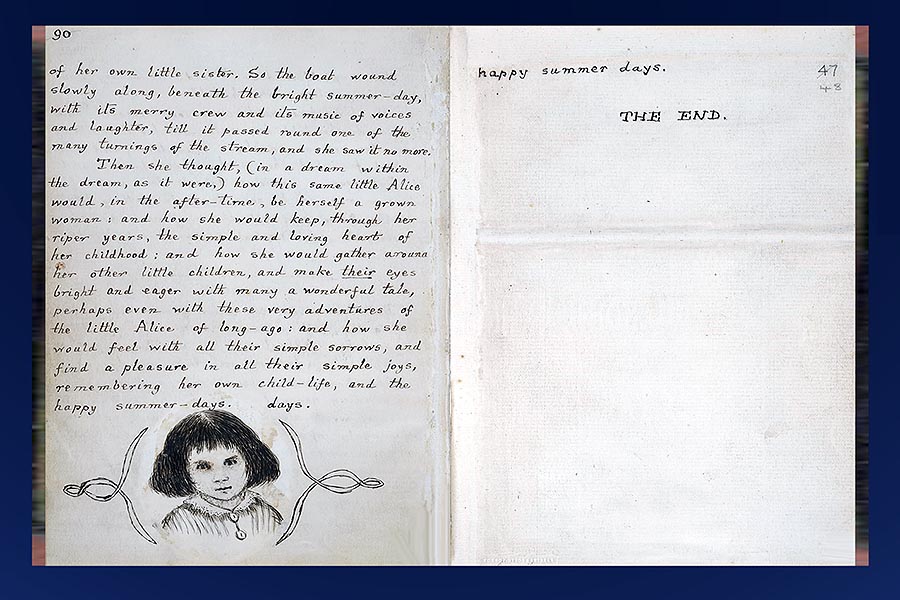 90
of her own little sister. So the boat wound
slowly along, beneath the bright summer-day,
with its merry crew and its music of voices
and laughter, till it passed round one of the
many turnings of the stream, and she saw it no more.
Then she thought, (in a dream within
the dream, as it were,) how this same little Alice
would, in the after-time, be herself a grown
woman: and how she would keep, through her
riper years, the simple and loving heart of
her childhood: and how she would gather around
her other little children, and make their eyes
bright and eager with many a wonderful tale,
perhaps even with these very adventures of
the little Alice of long-ago: and how she
would feel with all their simple sorrows, and
find a pleasure in all their simple joys,
remembering her own child-life, and the
happy summer-days. days.
happy summer days.
THE END.
47
48